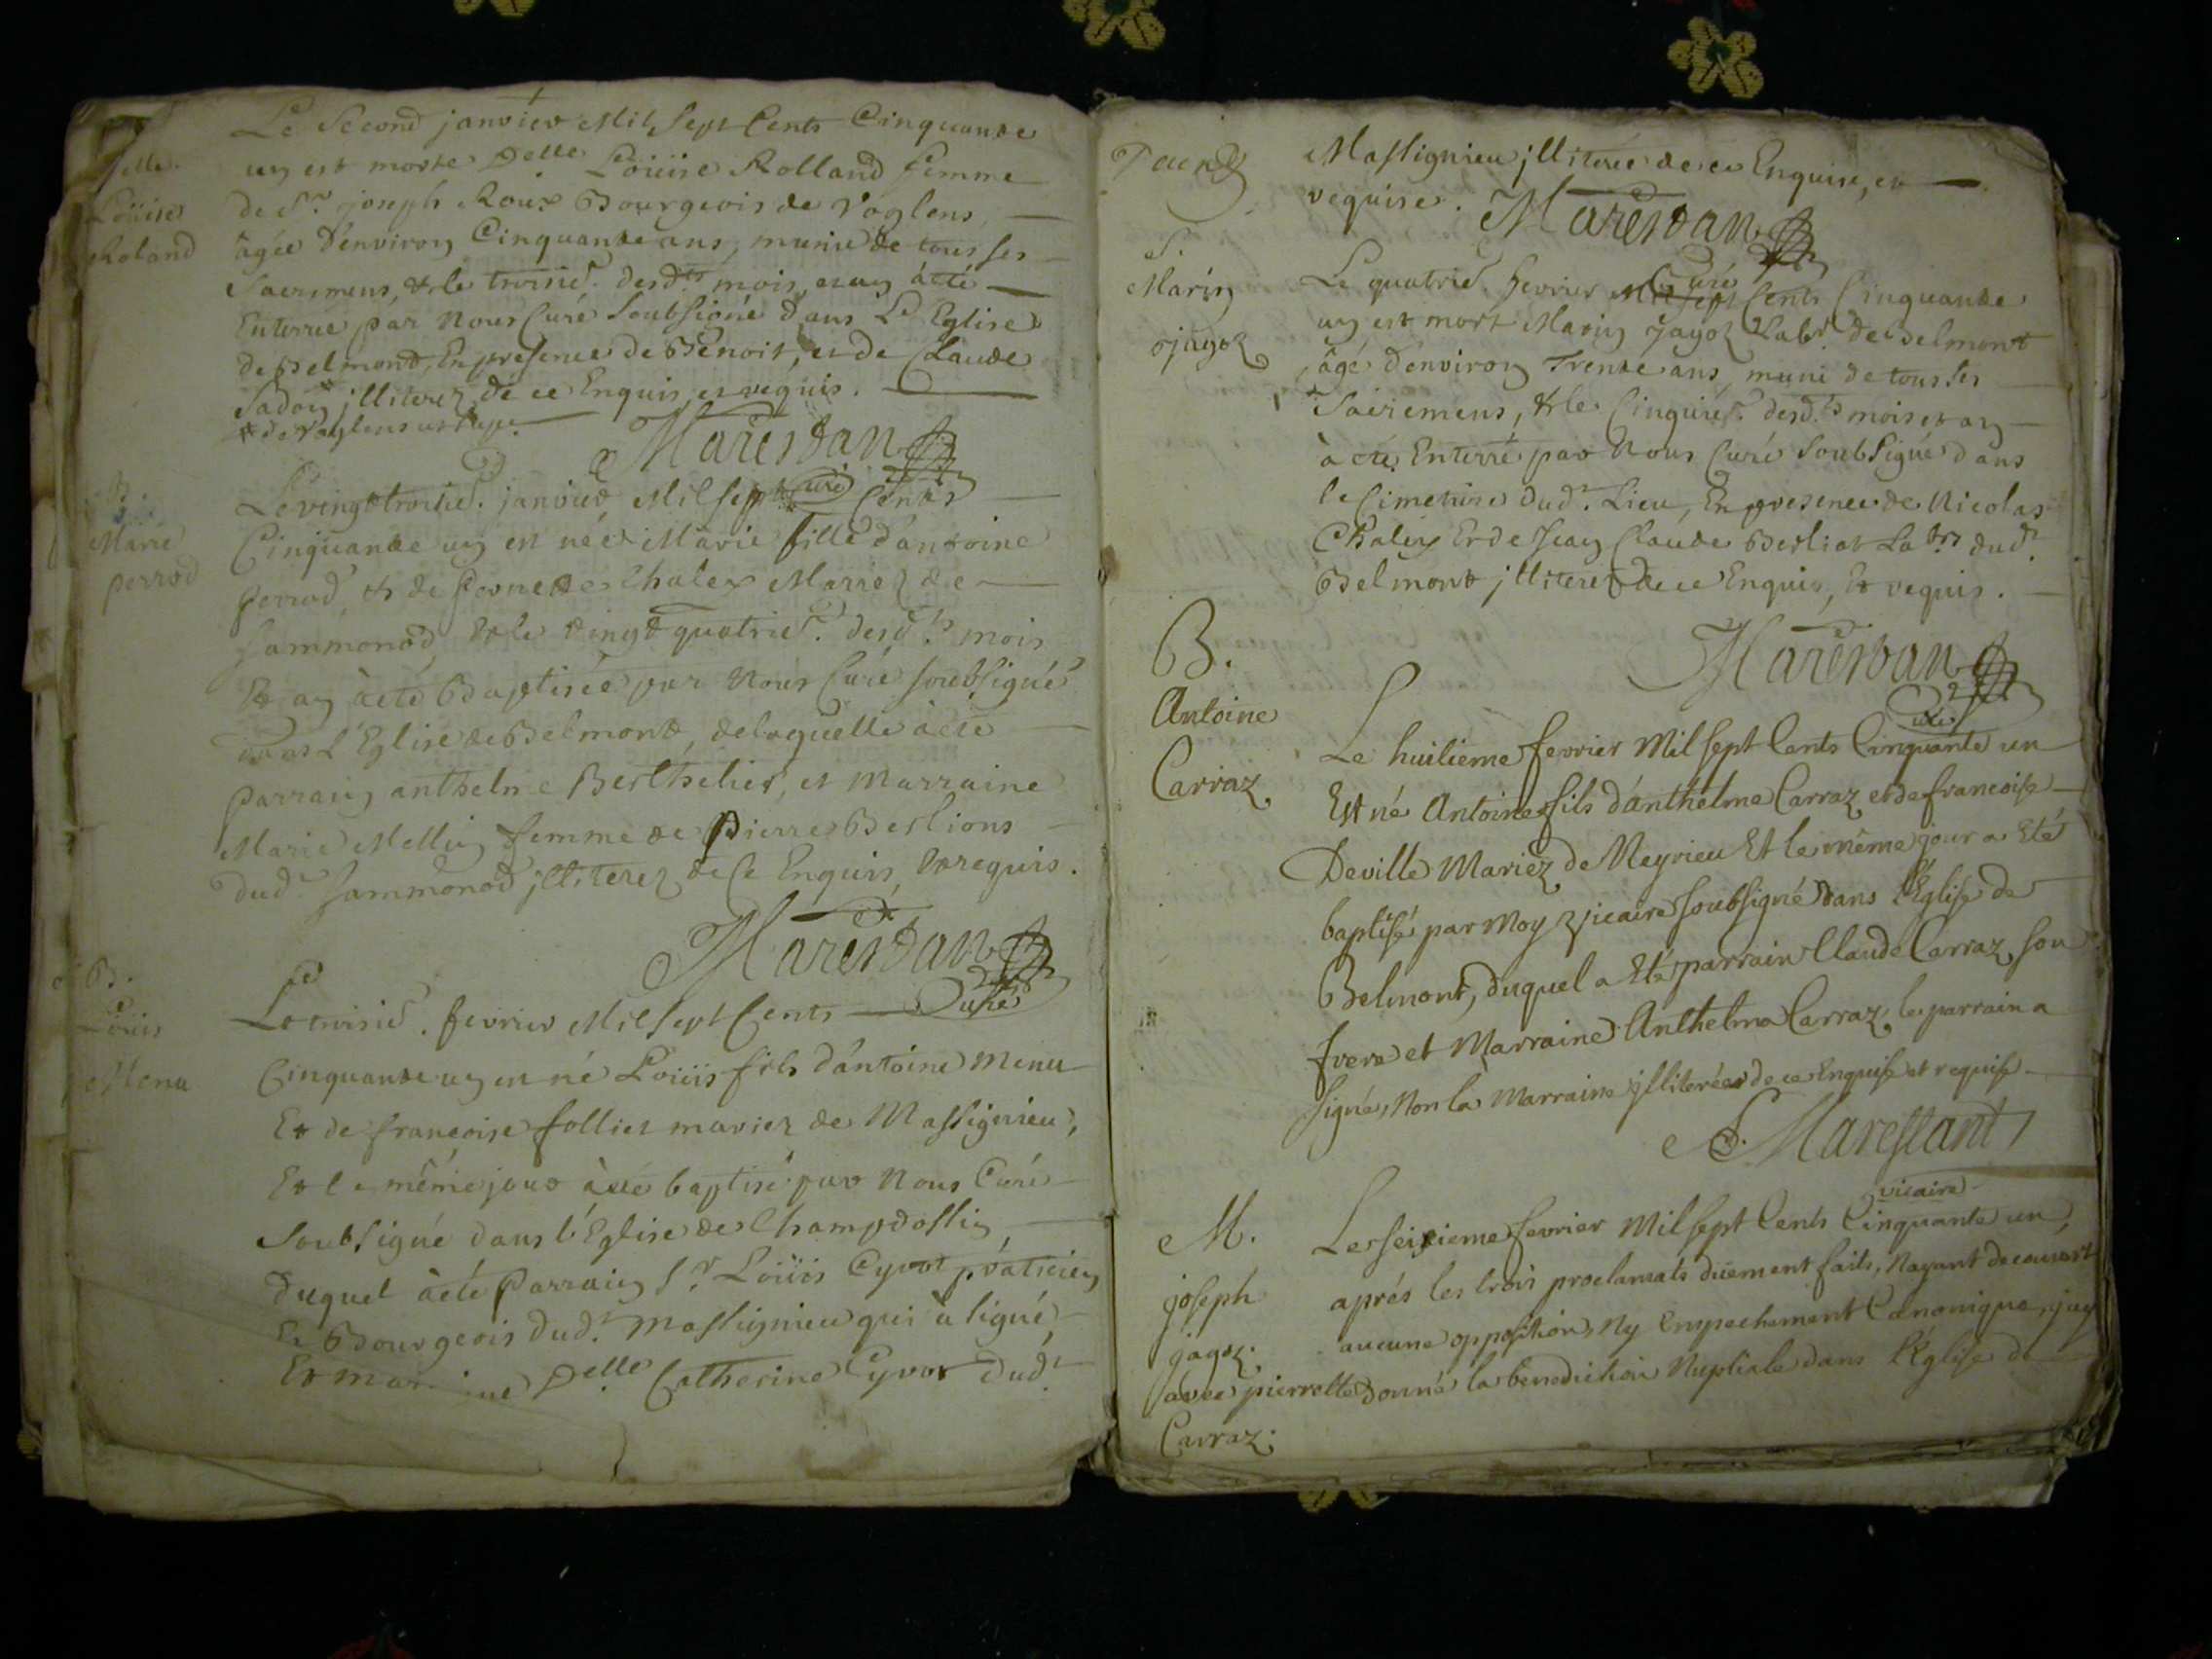 Le second janvier Mil Sept Cents Cinquante
elle.
un est morte Delle Loüise Rolland femme
Loüise
de Sr. joseph Roux Bourgeois de Voglens,
Roland
âgée d'environ Cinquante ans, munie de tous ses
Sacremens, & le troisie. desdts mois, et an à été
Enterrée par Nous Curé Soubsigné dans L'Eglise
de Belmond, En presence de Benoit, et de Claude
Sadon * illiterez de ce Enquis, et requis.
* de Voglens
Marestan
Curé
B.
Marie
perrod
Le vingt troisie. janvier Mil Sept Cents
Cinquante un est née Marie fille d'antoine
perrod, & de Pernette Chalex Mariez de
Sammonod, & le vingt quatrie. desdts mois
Et an à été Baptisée par Nous Curé soubsigné
dans L'Eglise de Belmont, de laquelle à été
Parrain anthelme Berthelier, et Marraine
Marie Mellin femme de Pierre Berlions
dudt Sammonod illiterez de Ce Enquis, & requis.
Marestan
Curé
B.
Loüis
Menu
Le troisie. fevrier Mil Sept Cents
Cinquante un est né Loüis fils d'antoine Menu
Et de francoise follies mariez de Massignieu,
Et le même jour à été baptisé par Nous Curé
Soubsigné dans l'Eglise de Champdossin,
Duquel à été Parrain Sr. Loüis Cyvot praticien
Et Bourgeois dudt. Massignieu qui à signé,
Et marraine Delle Catherine Cyvot dudt
Massignieu illiterée de ce Enquise, et
requise. Marestan
Curé
S.
Marin
jagoz
Le quatrie. fevrier Mil sept Cents Cinquante
un est mort Marin Jagoz Labr. de Belmont
âgé d'environ Trente ans, muni de tous ses
Sacremens, & le Cinquie. desdts mois et an
à été Enterré par Nous Curé Soubsigné dans
le Cimetiere dudt. Lieu, En presence de Nicolas
Chalex Et de Jean Claude Berliot Labrs dudt
Belmont illiterez de ce Enquis, Et requis.
Marestan
Curé
B.
Antoine
Carraz
Le huitieme fevrier Mil sept Cents Cinquante un
Est né Antoine fils d'anthelme Carraz et de francoise
Deville Mariez de Meyrieu Et le même jour a Eté
baptisé par Moy vicaire soubsigné dans l'Eglise de
Belmont, duquel a Eté parrain Claude Carraz son
frere et Marraine Anthelma Carraz, le parrain a
signé, Non la Marraine illiterée de ce Enquise et requise.
Marestant
vicaire
M.
joseph
jagoz.
avec pierrette
Carraz.
Le seizieme fevrier Mil sept Cents Cinquante un,
aprés les trois proclamats düement faits, Nayant decouvert
aucune opposition, Ny Empechement Canonique, jay
donné la benediction Nuptiale dans l'Eglise de